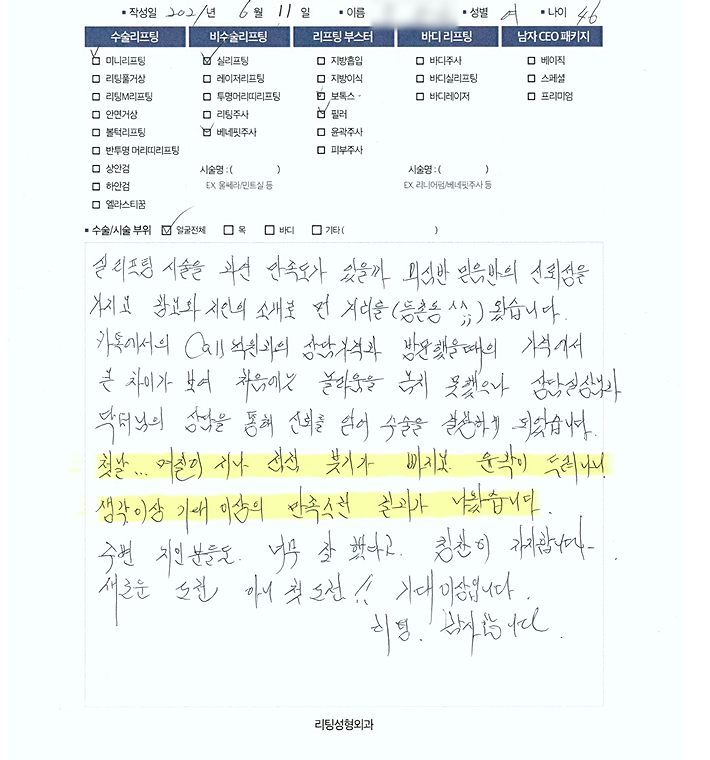 ▪ 작성일 2021 년 6 월 11 일 ▪ 이름 ▪ 성별 여 ▪ 나이 46
수술리프팅 비수술리프팅 리프팅 부스터 바디 리프팅 남자 CEO 패키지
☑ 미니리프팅 ☑ 실리프팅 ☐ 지방흡입 ☐ 바디주사 ☐ 베이직
☐ 리팅풀거상 ☐ 레이저리프팅 ☐ 지방이식 ☐ 바디실리프팅 ☐ 스페셜
☐ 리팅M리프팅 ☐ 투명머리띠리프팅 ☑ 보톡스 ☐ 바디레이저 ☐ 프리미엄
☐ 안면거상 ☐ 리팅주사 ☑ 필러
☐ 볼턱리프팅 ☑ 베네핏주사 ☐ 윤곽주사
☐ 반투명 머리띠리프팅 ☐ 피부주사
☐ 상안검 시술명 : ( ) 시술명 : ( )
☐ 하안검 EX. 울쎄라/민트실 등 EX. 리니어펌/베네핏주사 등
☐ 엘라스티꿈
▪ 수술/시술 부위 ☑ 얼굴전체 ☐ 목 ☐ 바디 ☐ 기타 ( )
실 리프팅 시술을 과연 만족도가 있을까 의심반 믿음반의 신뢰성을
가지고 광고와 지인의 소개로 먼 거리를 (등촌동 ^^;;) 왔습니다.
카톡에서의 Call 직원과의 상담가격과 방문했을때의 가격에서
큰 차이가 보여 처음에는 놀라움을 금치 못했으나 상담실장님과
닥터님의 상담을 통해 신뢰를 얻어 수술을 결심하게 되었습니다.
첫날... 며칠이 지나 점점 붓기가 빠지고 윤곽이 드러나니
생각이상 기대 이상의 만족스런 결과가 나왔습니다.
주변 지인분들도. 너무 잘 했다고. 칭찬이 자자합니다~
새로운 도전 아니 첫 도전!! 기대 이상입니다.
리팅. 감사합니다.
리팅성형외과